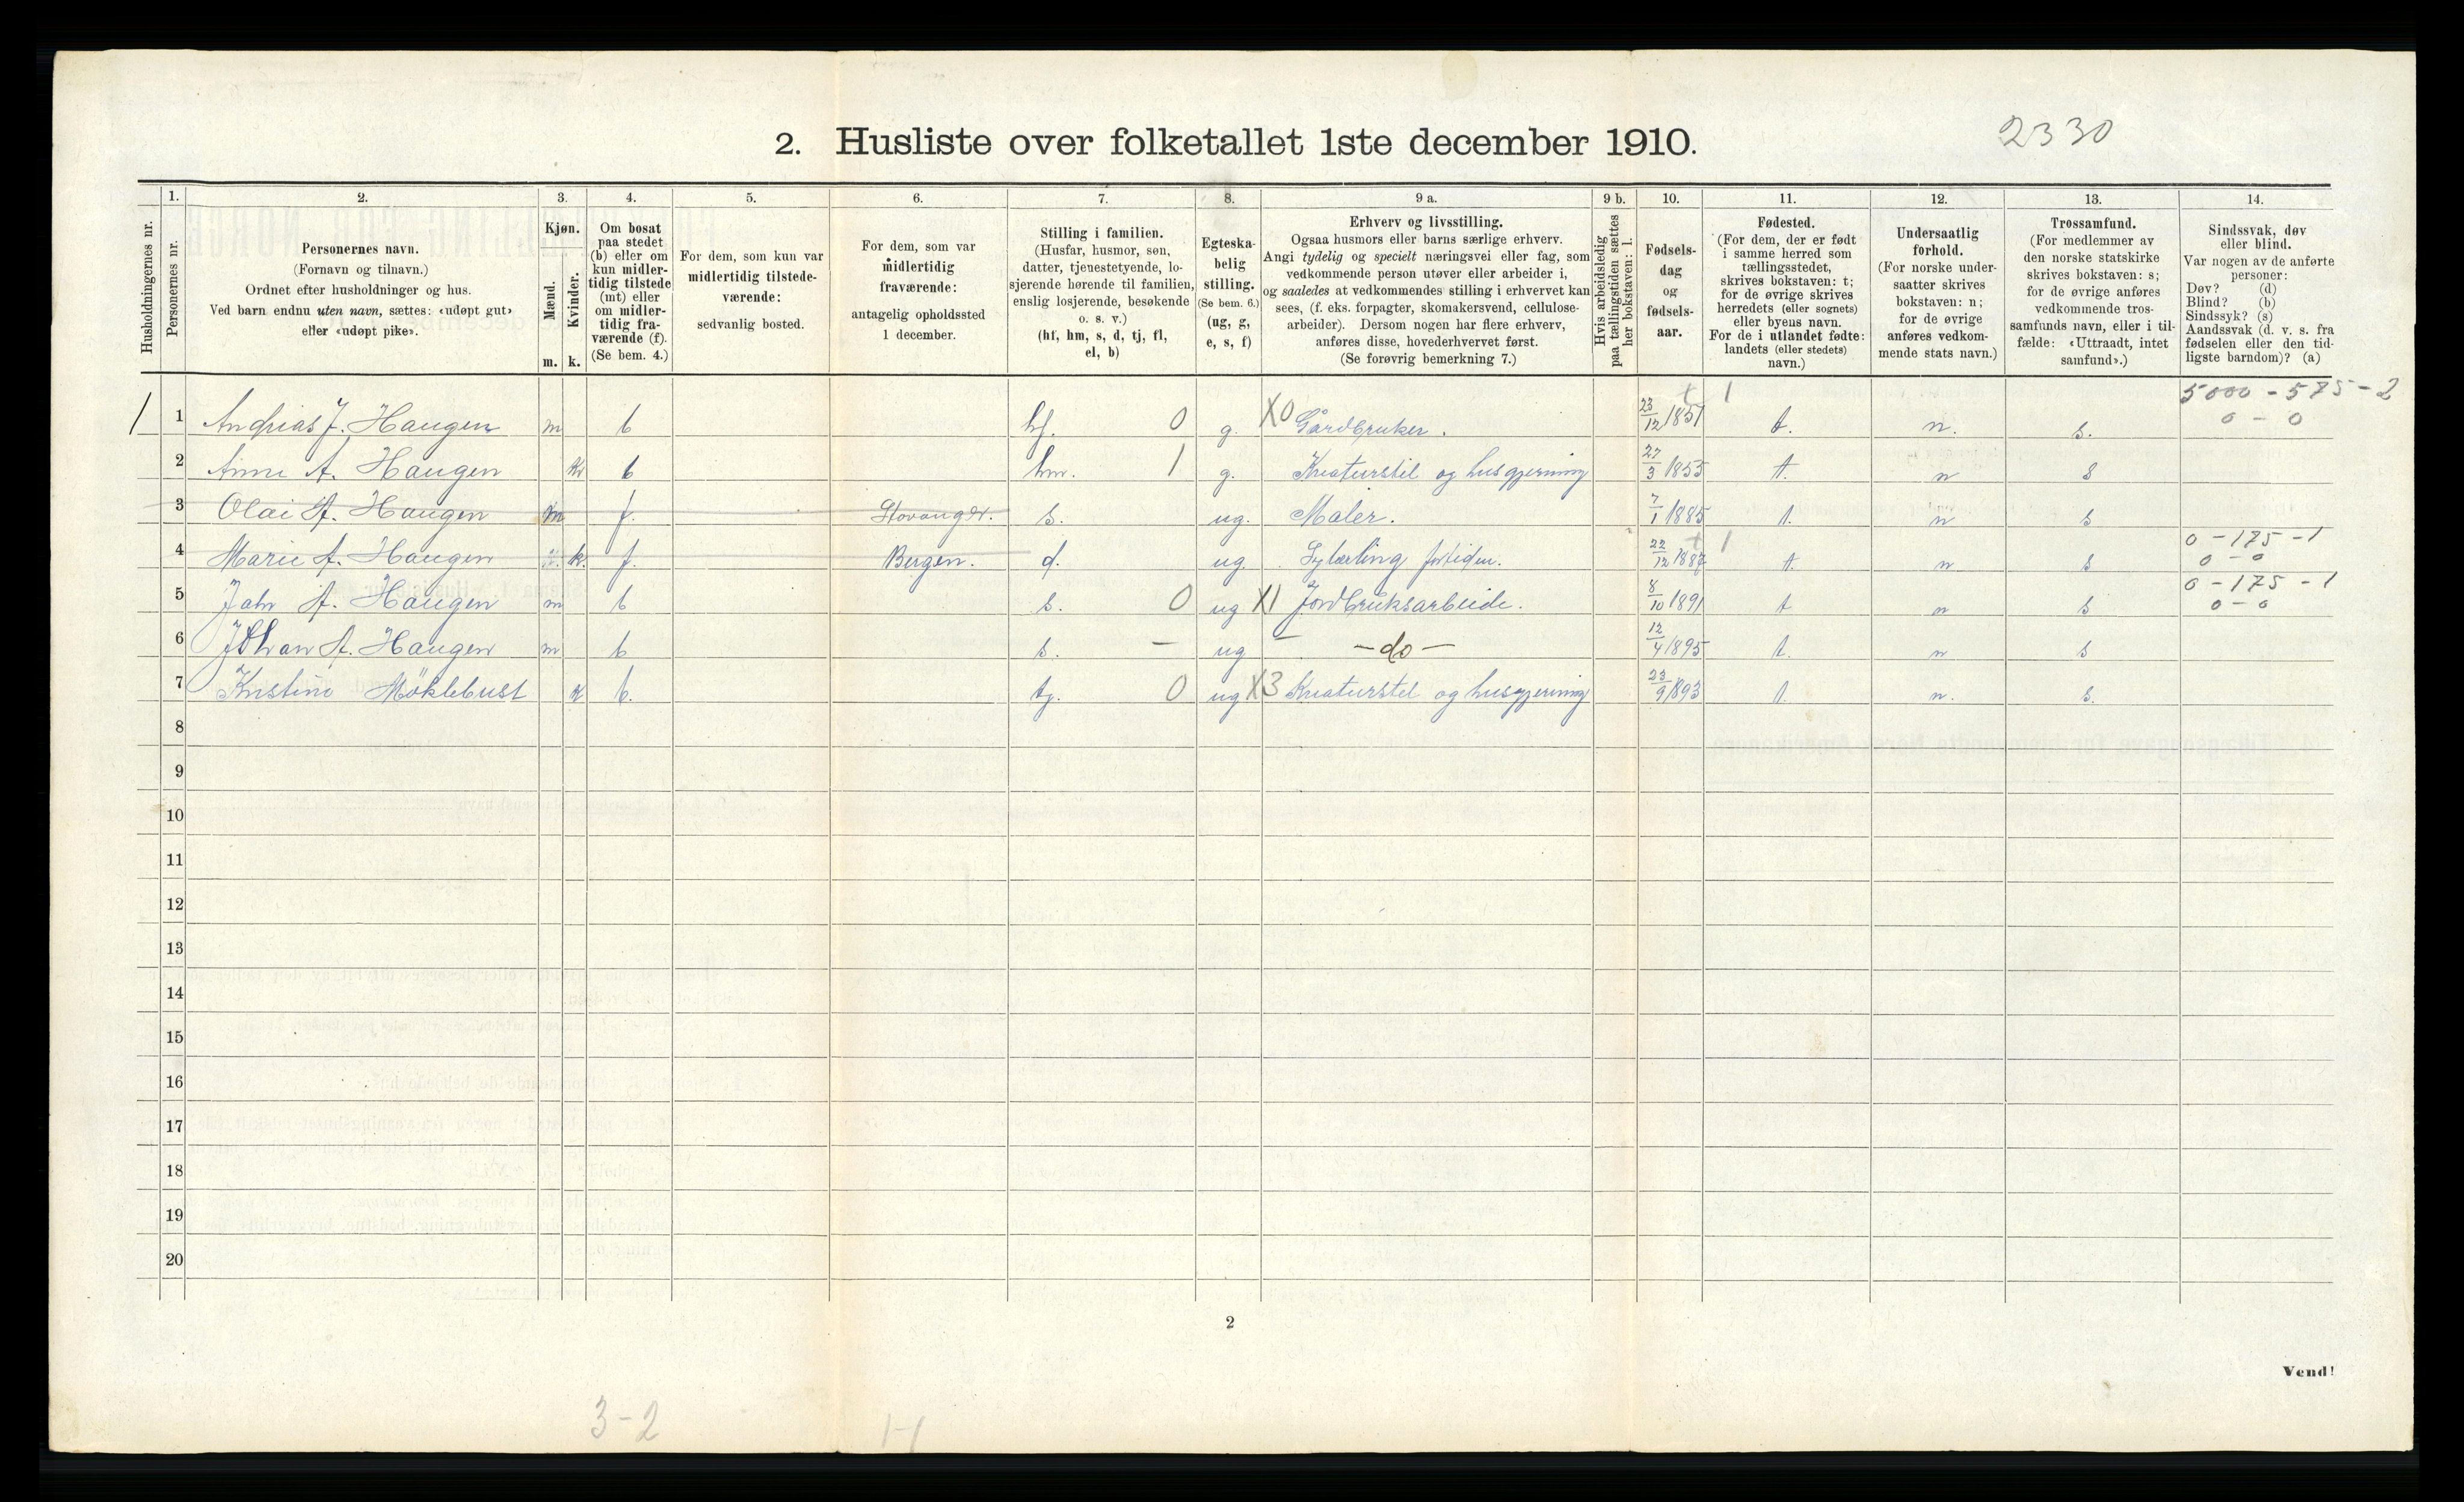 2330
2. Husliste over folketallet 1ste december 1910.
Husholdningernes nr.
1. Personernes nr.
2. Personernes navn. (Fornavn og tilnavn.) Ordnet efter husholdninger og hus. Ved barn endnu uten navn, sættes: «udøpt gut» eller «udøpt pike».
3. Kjøn. Mænd. m. Kvinder. k.
4. Om bosat paa stedet (b) eller om kun midlertidig tilstede (mt) eller om midlertidig fraværende (f). (Se bem. 4.)
5. For dem, som kun var midlertidig tilstedeværende: sedvanlig bosted.
6. For dem, som var midlertidig fraværende: antagelig opholdssted 1 december.
7. Stilling i familien. (Husfar, husmor, søn, datter, tjenestetyende, losjerende hørende til familien, enslig losjerende, besøkende o. s. v.) (hf, hm, s, d, tj, fl, el, b)
8. Egteskabelig stilling. (Se bem. 6.) (ug, g, e, s, f)
9 a. Erhverv og livsstilling. Ogsaa husmors eller barns særlige erhverv. Angi tydelig og specielt næringsvei eller fag, som vedkommende person utøver eller arbeider i, og saaledes at vedkommendes stilling i erhvervet kan sees, (f. eks. forpagter, skomakersvend, cellulosearbeider). Dersom nogen har flere erhverv, anføres disse, hovederhvervet først. (Se forøvrig bemerkning 7.)
9 b. Hvis arbeidsledig paa tællingstiden sættes her bokstaven: l.
10. Fødselsdag og fødselsaar.
11. Fødested. (For dem, der er født i samme herred som tællingsstedet, skrives bokstaven: t; for de øvrige skrives herredets (eller sognets) eller byens navn. For de i utlandet fødte: landets (eller stedets) navn.)
12. Undersaatlig forhold. (For norske undersaatter skrives bokstaven: n; for de øvrige anføres vedkommende stats navn.)
13. Trossamfund. (For medlemmer av den norske statskirke skrives bokstaven: s; for de øvrige anføres vedkommende trossamfunds navn, eller i tilfælde: «Uttraadt, intet samfund».)
14. Sindssvak, døv eller blind. Var nogen av de anførte personer: Døv? (d) Blind? (b) Sindssyk? (s) Aandssvak (d. v. s. fra fødselen eller den tidligste barndom)? (a)
1 1 Andrias J. Haugen m b hf. 0 g. X0 Gårdbruker. 23/12 1851 t. n. s. 5000 - 575 - 2 0 - 0
2 A. Haugen k b hm. 1 g. Kreaturstel og husgjerning 27/3 1855 t. n s
3 Olai A. Haugen m f. Stavanger. s. ug. Maler. 7/1 1885 t. n s
4 Marie A. Haugen k. f. Bergen. d. ug. Sylærling fortiden. 22/12 1887 t. n s 0 - 175 - 1 0 - 0
5 Jahn A. Haugen m b s. 0 ug X1 Jordbruksarbeide. 8/10 1891 t n s 0 - 175 - 1 0 - 0
6 Johan A. Haugen m b s. - ug - do - 12/4 1895 t. n s
7 Kristine Möklebust k b. tj. 0 ug X3 Kreaturstel og husgjerning 23/9 1893 t. n. s.
8
9
10
11
12
13
14
15
16
17
18
19
20
2
Vend!
3-2 1-1